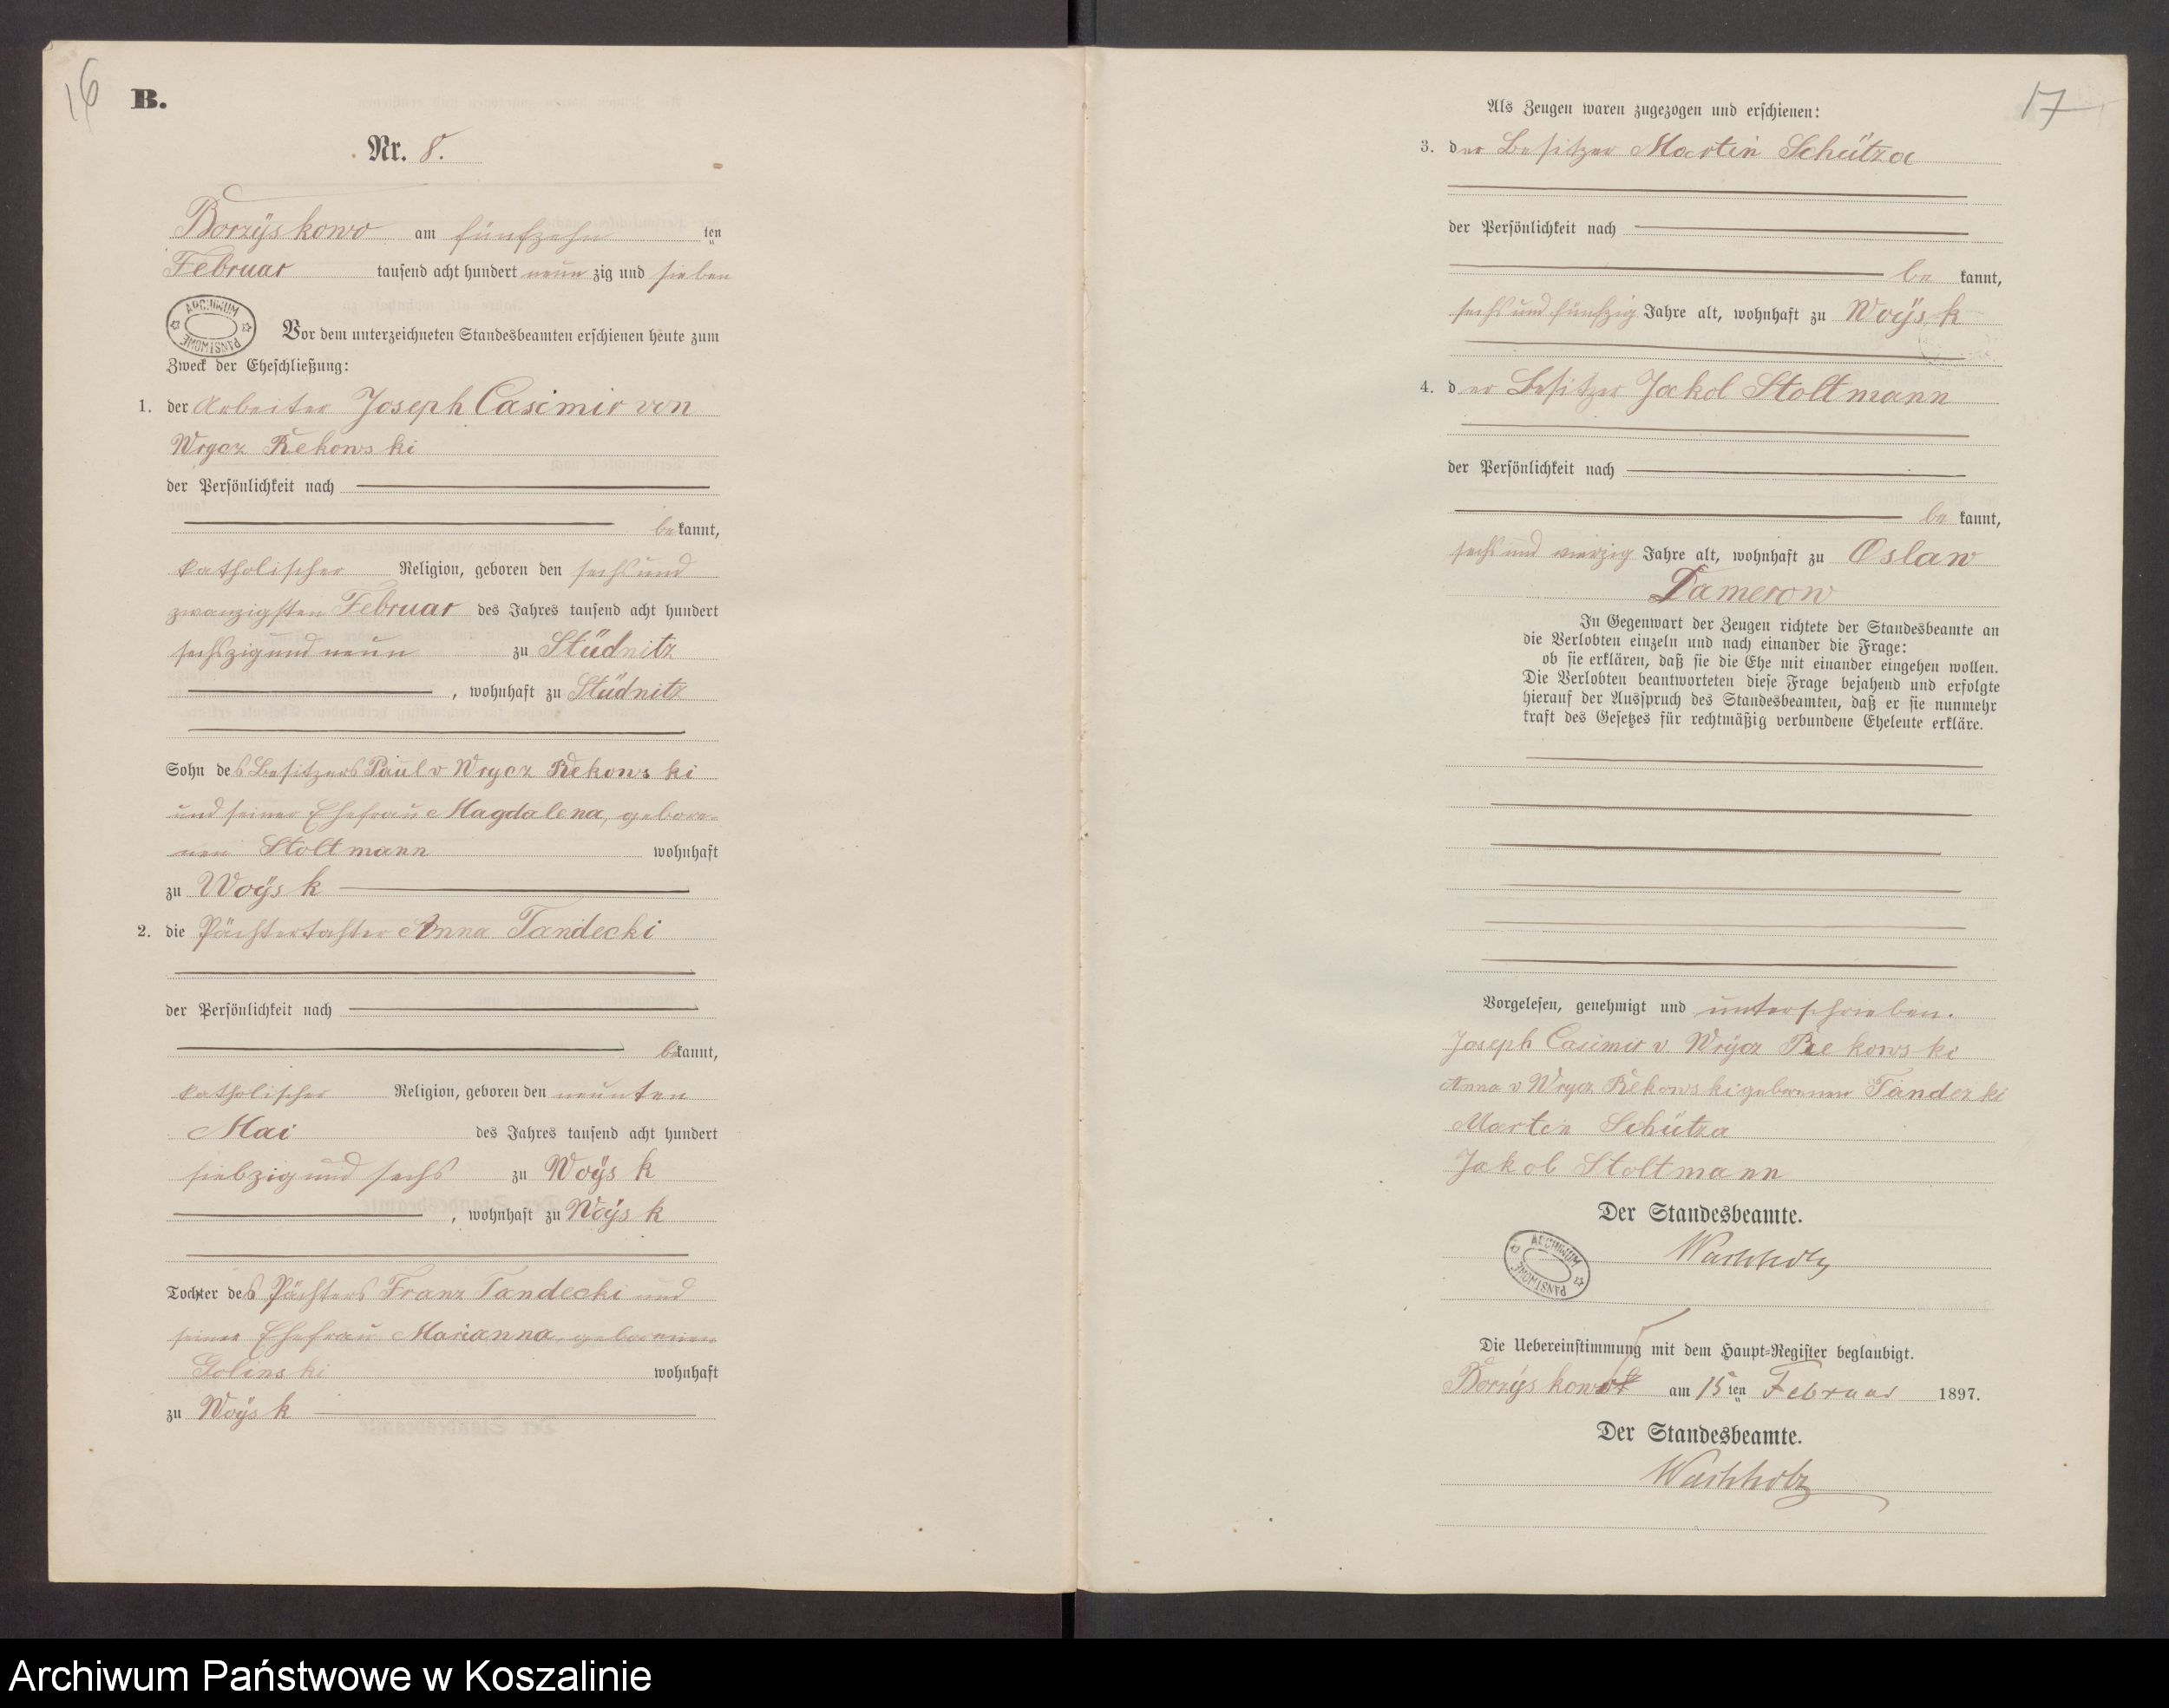 16
B.
Nr. 8.
Borzÿskowo am fünfzehn ten
Februar tausend acht hundert neun zig und sieben
ARCHIWUM PAŃSTWOWE
Vor dem unterzeichneten Standesbeamten erschienen heute zum
Zweck der Eheschließung:
1. der Arbeiter Joseph Casimir von
Wrycz Rekowski
der Persönlichkeit nach
be kannt,
katholischer Religion, geboren den sechsund
zwanzigsten Februar des Jahres tausend acht hundert
sechszigund neun zu Stüdnitz
, wohnhaft zu Stüdnitz
Sohn des Besitzers Paul v Wrycz Rekowski
und seiner Ehefrau Magdalena, gebore-
nen Stoltmann wohnhaft
zu Woÿsk
2. die Pächtertochter Anna Tandecki
der Persönlichkeit nach
bekannt,
katholischer Religion, geboren den neunten
Mai des Jahres tausend acht hundert
siebzigund sechs zu Woÿsk
, wohnhaft zu Woÿsk
Tochter des Pächters Franz Tandecki und
seiner Ehefrau Marianna geborenen
Golinski wohnhaft
zu Woÿsk
17
Als Zeugen waren zugezogen und erschienen:
3. der Besitzer Martin Schütza
der Persönlichkeit nach
be kannt,
sechsundfünfzig Jahre alt, wohnhaft zu Woÿsk
4. der Besitzer Jakob Stoltmann
der Persönlichkeit nach
be kannt,
sechsund vierzig Jahre alt, wohnhaft zu Oslaw
Damerow
In Gegenwart der Zeugen richtete der Standesbeamte an
die Verlobten einzeln und nach einander die Frage:
ob sie erklären, daß sie die Ehe mit einander eingehen wollen.
Die Verlobten beantworteten diese Frage bejahend und erfolgte
hierauf der Ausspruch des Standesbeamten, daß er sie nunmehr
kraft des Gesetzes für rechtmäßig verbundene Eheleute erkläre.
Vorgelesen, genehmigt und unterschrieben.
Joseph Casimir v. Wrÿcz Rekowski
Anna v Wrycz Rekowski geborener Tandezki
Martin Schütza
Jakob Stoltmann
Der Standesbeamte.
Wachholz
ARCHIWUM PAŃSTWOWE
Die Uebereinstimmung mit dem Haupt-Register beglaubigt.
Borzÿskowo am 15 ten Februar 1897.
Der Standesbeamte.
Wachholz
Archiwum Państwowe w Koszalinie